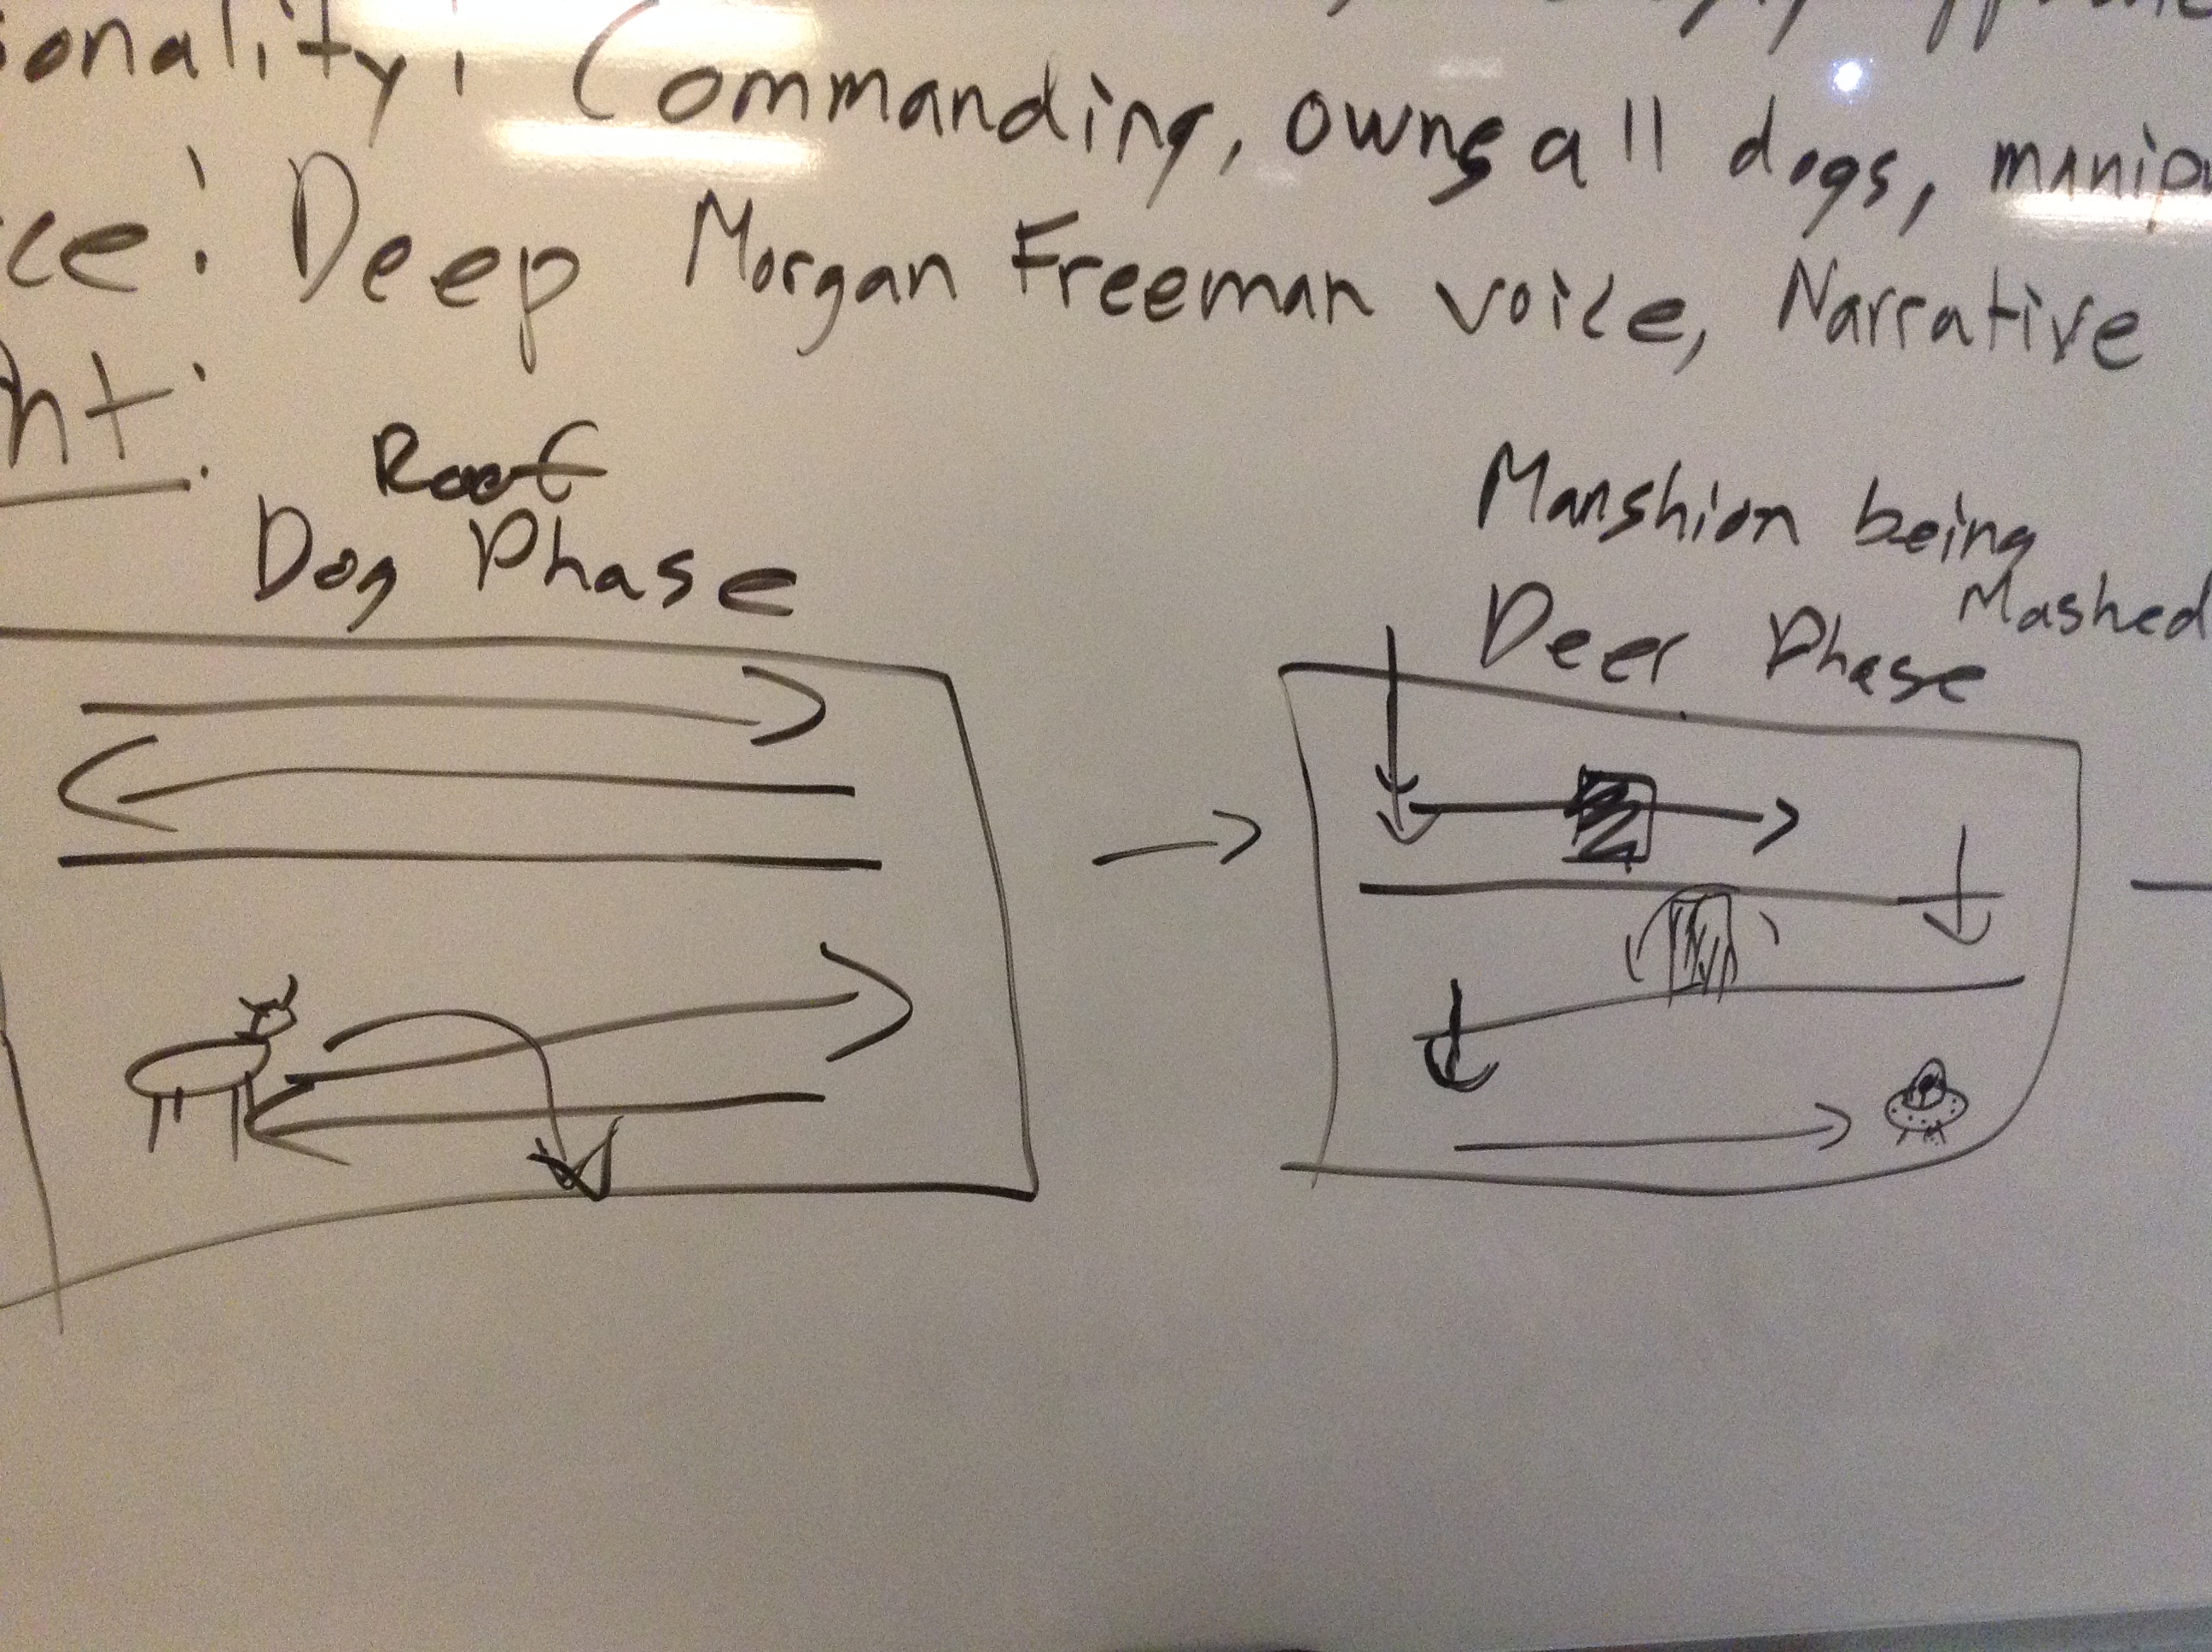 onality: Commanding, owns all dogs, manipu
ce: Deep Morgan Freeman voice, Narrative
ht:
Roof
Dog Phase
Manshion being
Mashed
Deer Phase